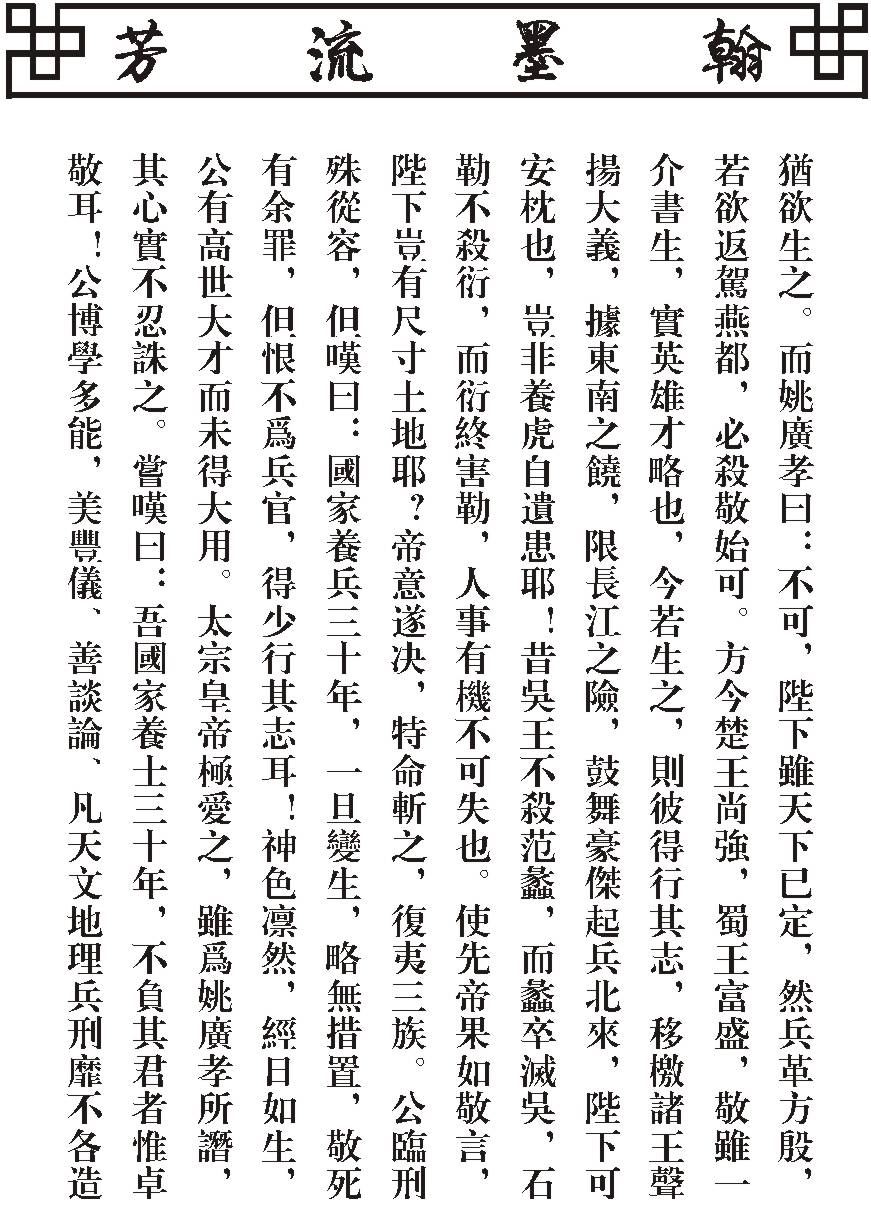 翰墨流芳
猶欲生之。而姚廣孝曰：不可，陛下雖天下已定，然兵革方殷，
若欲返駕燕都，必殺敬始可。方今楚王尚強，蜀王富盛，敬雖一
介書生，實英雄才略也，今若生之，則彼得行其志，移檄諸王聲
揚大義，據東南之饒，限長江之險，鼓舞豪傑起兵北來，陛下可
安枕也，豈非養虎自遺患耶！昔吳王不殺范蠡，而蠡卒滅吳，石
勒不殺衍，而衍終害勒，人事有機不可失也。使先帝果如敬言，
陛下豈有尺寸土地耶？帝意遂決，特命斬之，復夷三族。公臨刑
殊從容，但嘆曰：國家養兵三十年，一旦變生，略無措置，敬死
有余罪，但恨不爲兵官，得少行其志耳！神色凛然，經日如生，
公有高世大才而未得大用。太宗皇帝極愛之，雖爲姚廣孝所譖，
其心實不忍誅之。嘗嘆曰：吾國家養士三十年，不負其君者惟卓
敬耳！公博學多能，美豐儀、善談論、凡天文地理兵刑靡不各造